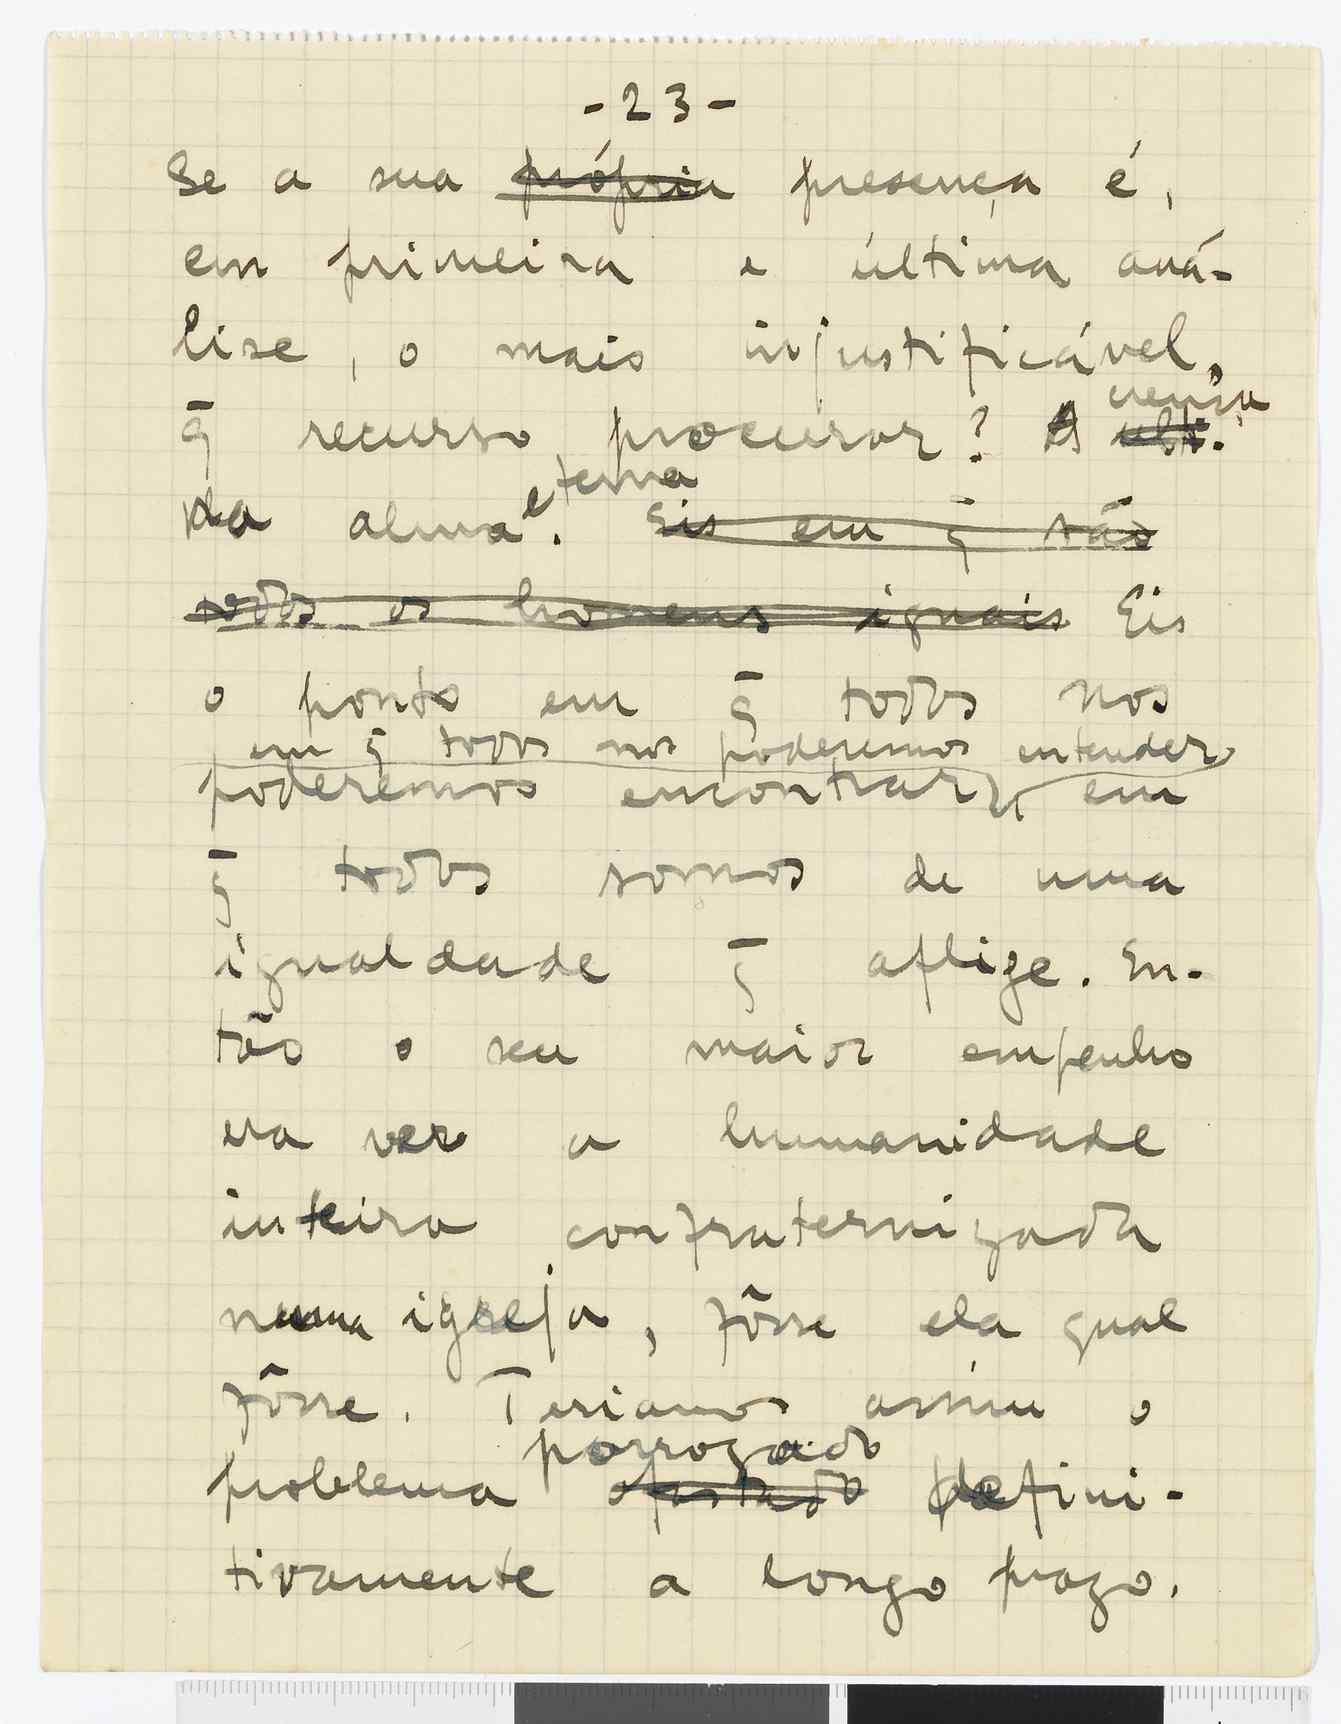 -23-
Se a sua própria presença é,
em primeira e última aná-
lise, o mais injustificável,
q̄ recurso procurar? A
da alma eterna.
Eis em q̄ são
todos os homens iguais Eis
o ponto em q̄ todos nos
em q̄ todos nos poderemos entender
poderemos encontrar, em
q̄ todos somos de uma
igualdade q̄ aflige. En-
tão o seu maior empenho
era ver a humanidade
inteira confraternizada
numa igreja, fôsse ela qual
fôsse. Teriamos assim o
porrogado
problema afastado defini-
tivamente a longo prazo.